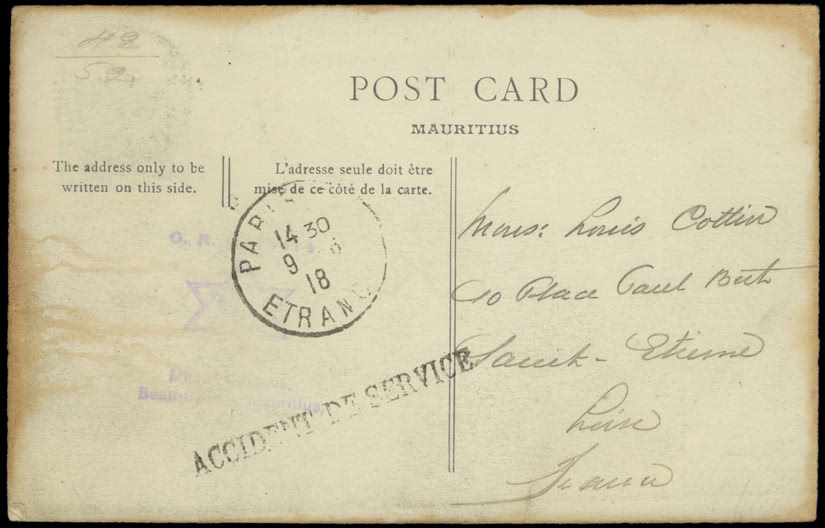 42
52
POST CARD
MAURITIUS
The address only to be
written on this side.
L'adresse seule doit être
mise de ce côté de la carte.
PARIS
14 30
9
18
ETRANG
G. R.
Beau
ACCIDENT DE SERVICE
Mons: Louis Cottin
10 Place Paul Bert
Saint-Etienne
Loire
France